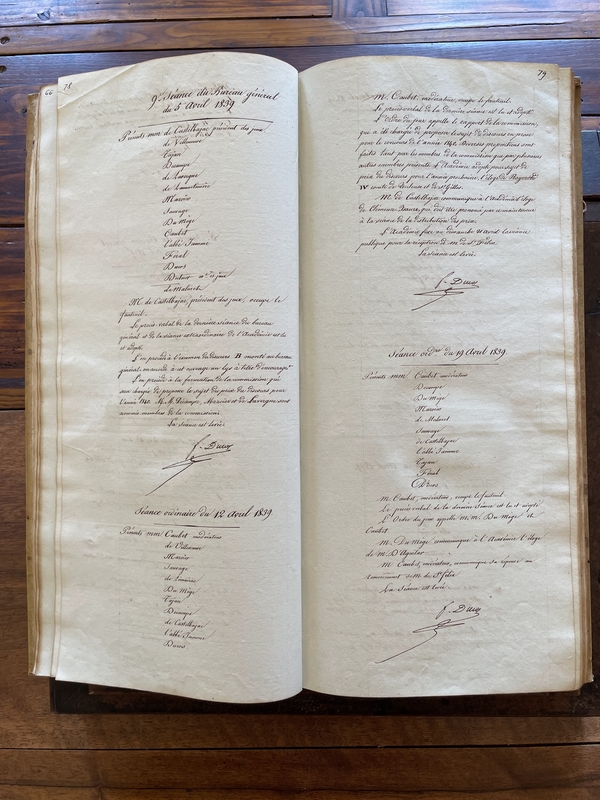 66
78
9e Séance du Bureau général
du 5 Avril 1839
Présents mm. de Castelbajac président des jeux
de Villeneuve
Tajan
Decampe
de Lavergne
Moquin
Sauvage
Du Mège
Caubet
l'abbé Jamme
Féral
Ducos
de Malaret
M. de Castelbajac, président des jeux, occupe le
fauteuil.
Le procès-verbal de la dernière séance du bureau
général et de la séance extraordinaire de l'Académie est lu
et adopté.
L'on procède à l'examen du discours B monté au bureau
général. accordé à cet ouvrage un lys à titre d'encouragt
L'on procède à la formation de la commission qui
sera chargée de proposer le sujet du prix du discours pour
l'année 1840. M.M. Decampe, et de Lavergne sont
nommés membres de la commission.
La séance est levée.
f. Ducos
Séance ordinaire du 12 Avril 1839
Présents mm. Caubet modérateur
de Villeneuve
Sauvage
Du Mège
Tajan
Decampe
de Castelbajac
l'abbé Jamme
Ducos
79
M. Caubet, modérateur, occupe le fauteuil.
Le procès-verbal de la dernière séance est lu et adopté.
L'ordre du jour appelle le rapport de la commission,
qui a été chargée de proposer le sujet du discours en prose
pour le concours de l'année 1840. Diverses propositions sont
faites tant par les membres de la commission que par plusieurs
autres membres présents. L'Académie adopte pour sujet du
prix du discours pour l'année prochaine, l'éloge de Raymond
IV comte de Toulouse et de St Gilles.
M. de Castelbajac communique à l'Académie l'éloge
de Clémence Isaure, qui doit être prononcé par ce mainteneur
à la séance de la distribution des prix.
L'Académie fixe au dimanche 21 avril la séance
publique pour la réception de M. de St Félix.
La séance est levée.
f. Ducos
Séance ordre du 19 Avril 1839.
Présents mm. Caubet modérateur
Decampe
Du Mège
de Malaret
Sauvage
de Castelbajac
l'abbé Jamme
Tajan
Féral
Ducos
M. Caubet, modérateur, occupe le fauteuil.
Le procès-verbal de la dernière séance est lu et adopté
L'Ordre du jour appelle m.m. Du Mège et
Caubet.
M. Du Mège communique à l'Académie l'éloge
de M. D'Aguilar
M. Caubet, modérateur, communique sa réponse au
remerciement de M. de St Félix
La Séance est levée.
f. Ducos